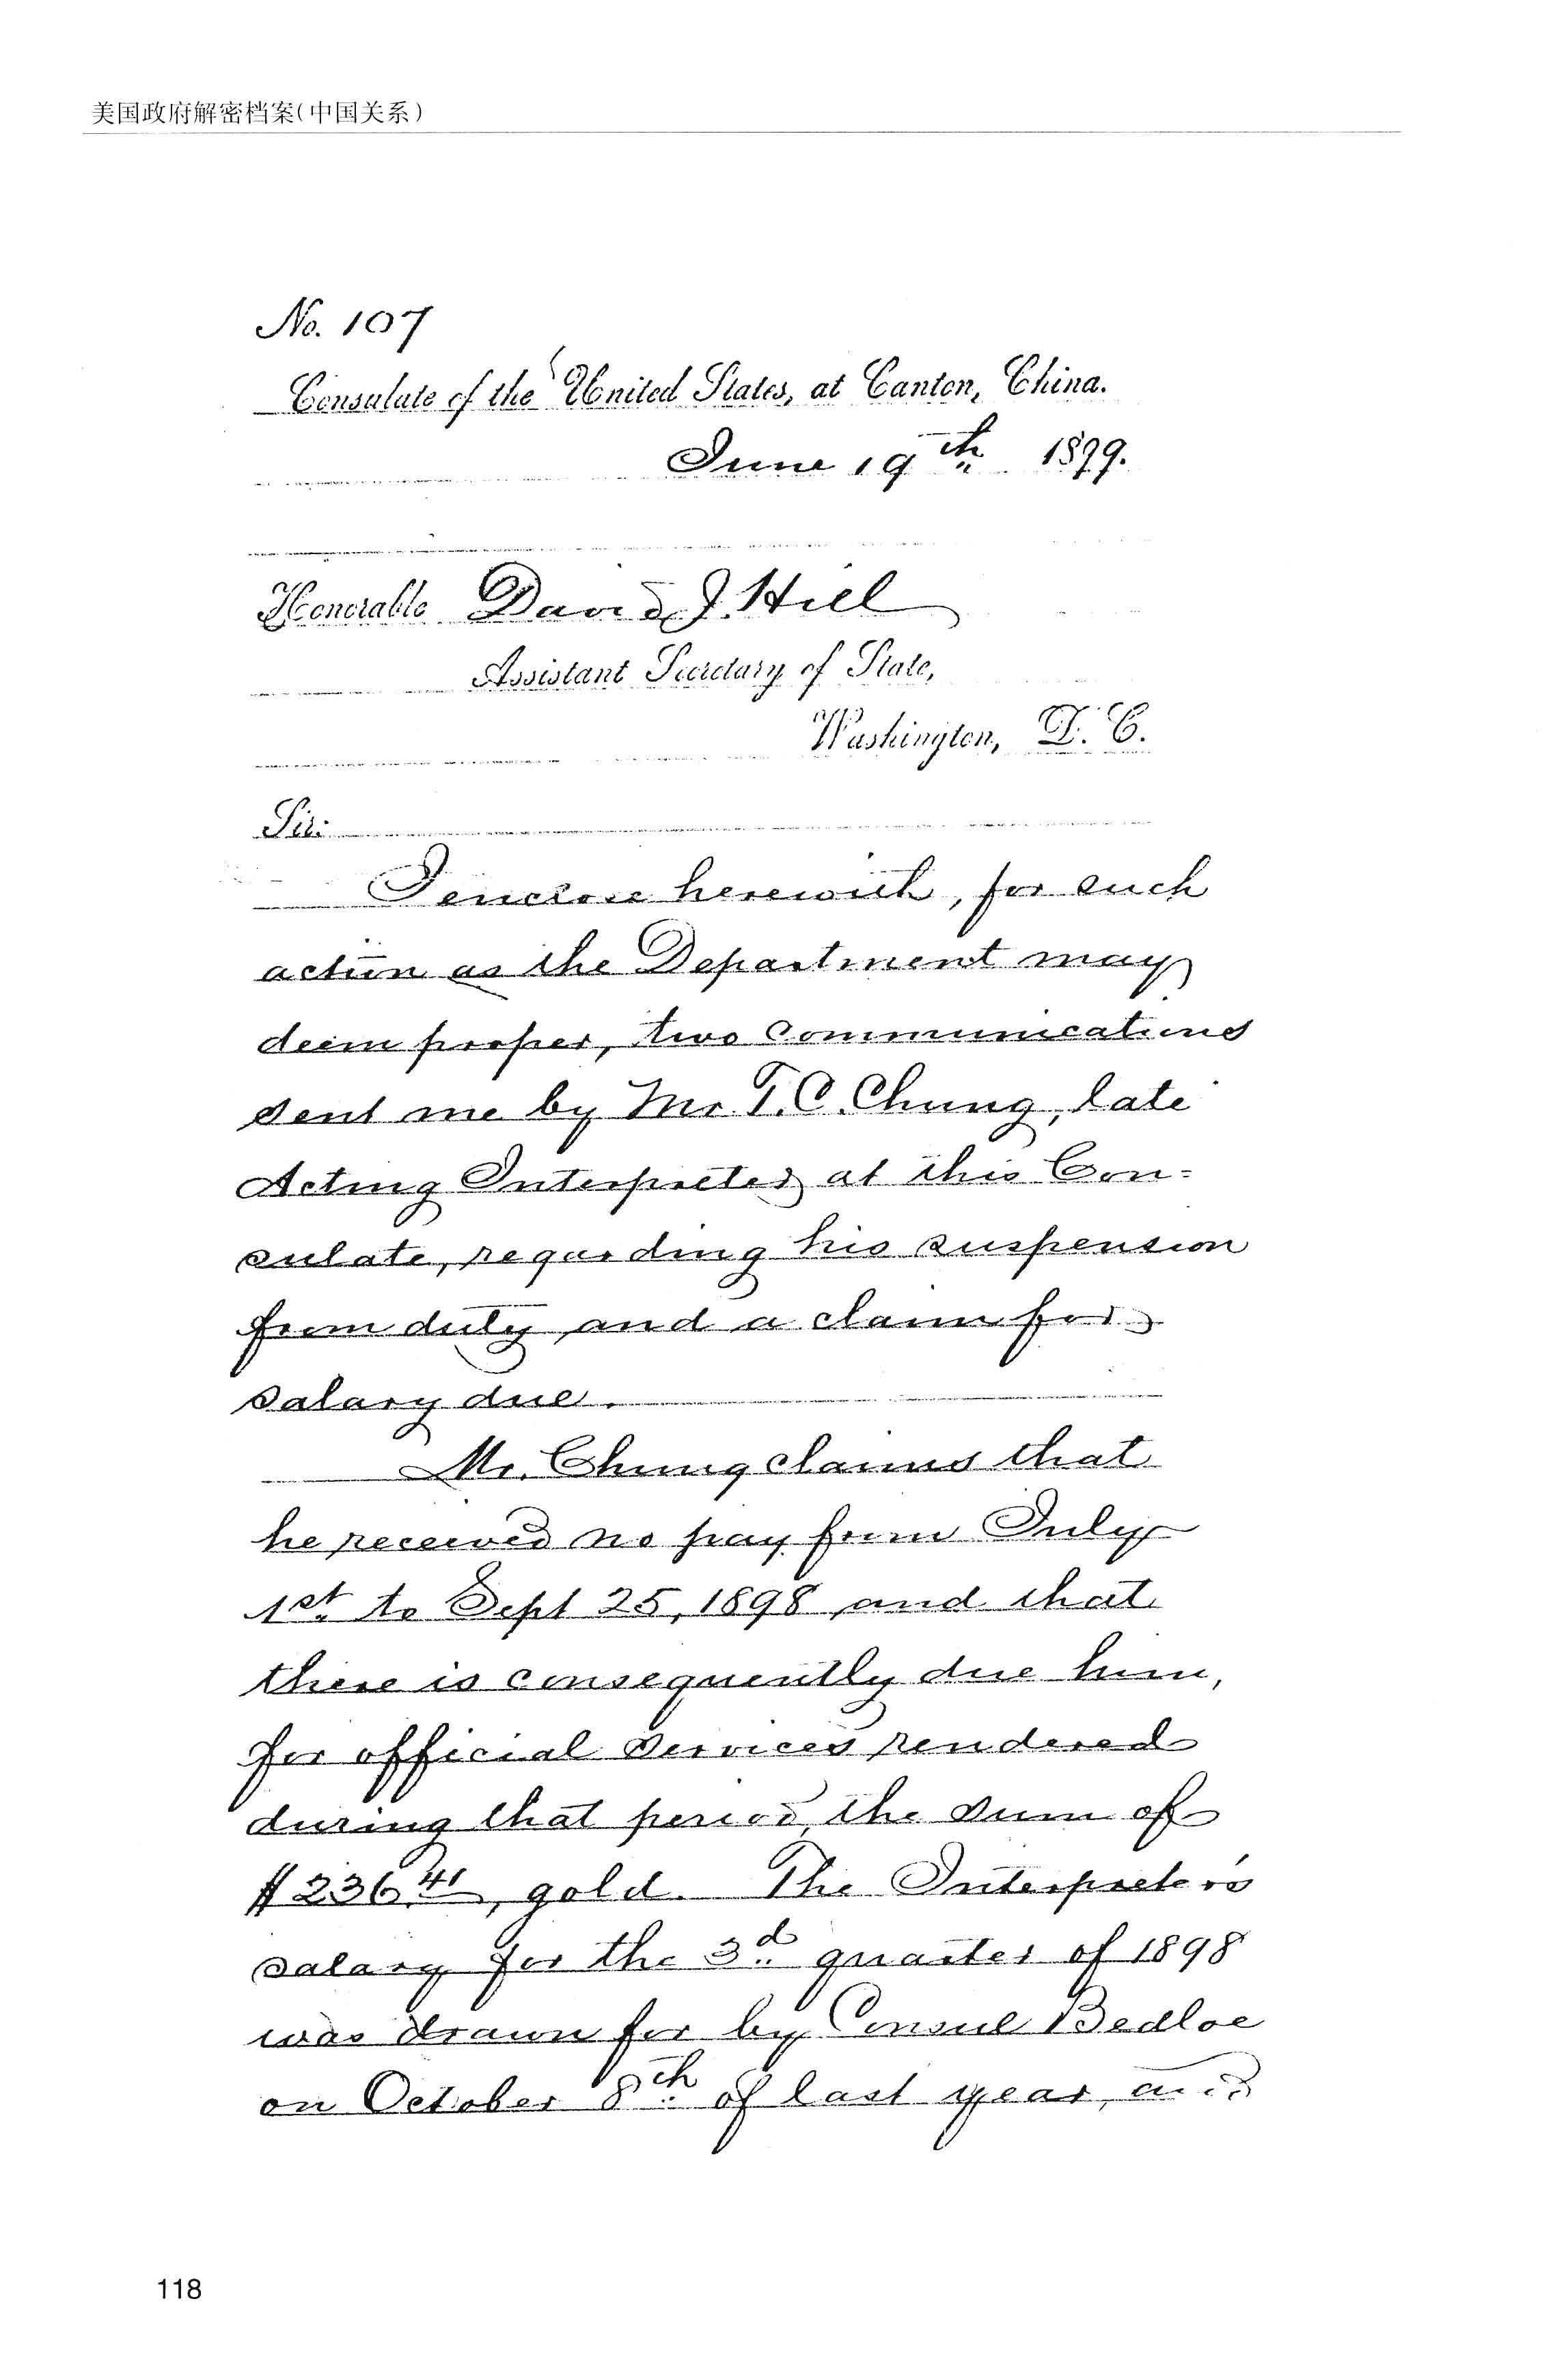 美国政府解密档案(中国关系)
No. 107
Consulate of the United States, at Canton, China.
June 19th 1899.
Honorable David J. Hill
Assistant Secretary of State,
Washington, D. C.
Sir:
I enclose herewith, for such
action as the Department may
deem proper, two communications
sent me by Mr. T. C. Chung, late
Acting Interpreter at this Con=
sulate, regarding his suspension
from duty and a claim for
salary due.
Mr. Chung claims that
he received no pay from July
1st to Sept 25, 1898 and that
there is consequently due him,
for official services rendered
during that period, the sum of
$236.41, gold. The Interpreter's
salary for the 3d quarter of 1898
was drawn for by Consul Bedloe
on October 8th of last year, and
118